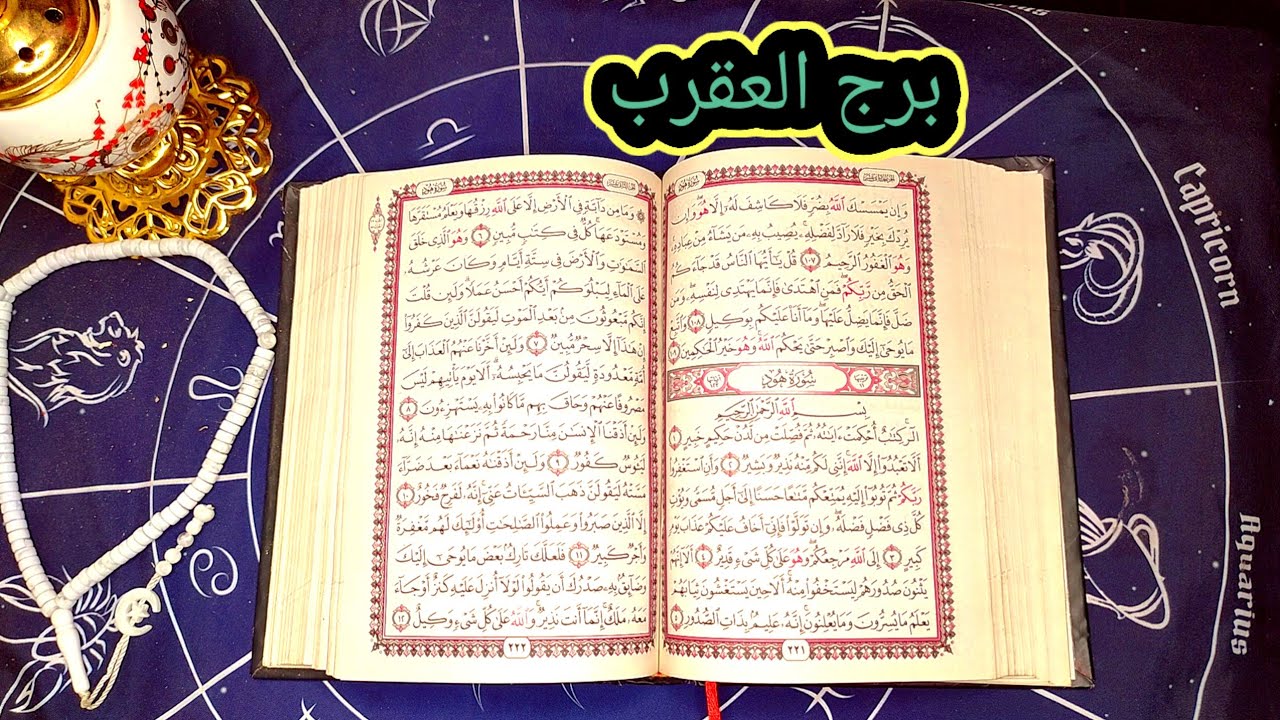 برج العقرب
سورة يونس
وَإِن يَمْسَسْكَ ٱللَّهُ بِضُرٍّ فَلَا كَاشِفَ لَهُۥٓ إِلَّا هُوَ وَإِن
يُرِدْكَ بِخَيْرٍ فَلَا رَآدَّ لِفَضْلِهِۦ يُصِيبُ بِهِۦ مَن يَشَآءُ مِنْ عِبَادِهِۦ
وَهُوَ ٱلْغَفُورُ ٱلرَّحِيمُ ١٠٧ قُلْ يَٰٓأَيُّهَا ٱلنَّاسُ قَدْ جَآءَكُمُ
ٱلْحَقُّ مِن رَّبِّكُمْ فَمَنِ ٱهْتَدَىٰ فَإِنَّمَا يَهْتَدِى لِنَفْسِهِۦ وَمَن
ضَلَّ فَإِنَّمَا يَضِلُّ عَلَيْهَا وَمَآ أَنَا۠ عَلَيْكُم بِوَكِيلٍ ١٠٨ وَٱتَّبِعْ
مَا يُوحَىٰٓ إِلَيْكَ وَٱصْبِرْ حَتَّىٰ يَحْكُمَ ٱللَّهُ وَهُوَ خَيْرُ ٱلْحَٰكِمِينَ ١٠٩
سُورَةُ هُودٍ
بِسْمِ ٱللَّهِ ٱلرَّحْمَٰنِ ٱلرَّحِيمِ
الٓر كِتَٰبٌ أُحْكِمَتْ ءَايَٰتُهُۥ ثُمَّ فُصِّلَتْ مِن لَّدُنْ حَكِيمٍ خَبِيرٍ ١
أَلَّا تَعْبُدُوٓا۟ إِلَّا ٱللَّهَ إِنَّنِى لَكُم مِّنْهُ نَذِيرٌ وَبَشِيرٌ ٢ وَأَنِ ٱسْتَغْفِرُوا۟
رَبَّكُمْ ثُمَّ تُوبُوٓا۟ إِلَيْهِ يُمَتِّعْكُم مَّتَٰعًا حَسَنًا إِلَىٰٓ أَجَلٍ مُّسَمًّى وَيُؤْتِ
كُلَّ ذِى فَضْلٍ فَضْلَهُۥ وَإِن تَوَلَّوْا۟ فَإِنِّىٓ أَخَافُ عَلَيْكُمْ عَذَابَ يَوْمٍ
كَبِيرٍ ٣ إِلَى ٱللَّهِ مَرْجِعُكُمْ وَهُوَ عَلَىٰ كُلِّ شَىْءٍ قَدِيرٌ ٤ أَلَآ إِنَّهُمْ
يَثْنُونَ صُدُورَهُمْ لِيَسْتَخْفُوا۟ مِنْهُ أَلَا حِينَ يَسْتَغْشُونَ ثِيَابَهُمْ
يَعْلَمُ مَا يُسِرُّونَ وَمَا يُعْلِنُونَ إِنَّهُۥ عَلِيمٌۢ بِذَاتِ ٱلصُّدُورِ ٥
٢٢١
سورة هود
وَمَا مِن دَآبَّةٍ فِى ٱلْأَرْضِ إِلَّا عَلَى ٱللَّهِ رِزْقُهَا وَيَعْلَمُ مُسْتَقَرَّهَا
وَمُسْتَوْدَعَهَا كُلٌّ فِى كِتَٰبٍ مُّبِينٍ ٦ وَهُوَ ٱلَّذِى خَلَقَ
ٱلسَّمَٰوَٰتِ وَٱلْأَرْضَ فِى سِتَّةِ أَيَّامٍ وَكَانَ عَرْشُهُۥ
عَلَى ٱلْمَآءِ لِيَبْلُوَكُمْ أَيُّكُمْ أَحْسَنُ عَمَلًا وَلَئِن قُلْتَ
إِنَّكُم مَّبْعُوثُونَ مِنۢ بَعْدِ ٱلْمَوْتِ لَيَقُولَنَّ ٱلَّذِينَ كَفَرُوٓا۟
إِنْ هَٰذَآ إِلَّا سِحْرٌ مُّبِينٌ ٧ وَلَئِنْ أَخَّرْنَا عَنْهُمُ ٱلْعَذَابَ إِلَىٰٓ
أُمَّةٍ مَّعْدُودَةٍ لَّيَقُولُنَّ مَا يَحْبِسُهُۥٓ أَلَا يَوْمَ يَأْتِيهِمْ لَيْسَ
مَصْرُوفًا عَنْهُمْ وَحَاقَ بِهِم مَّا كَانُوا۟ بِهِۦ يَسْتَهْزِءُونَ ٨
وَلَئِنْ أَذَقْنَا ٱلْإِنسَٰنَ مِنَّا رَحْمَةً ثُمَّ نَزَعْنَٰهَا مِنْهُ إِنَّهُۥ
لَيَـُٔوسٌ كَفُورٌ ٩ وَلَئِنْ أَذَقْنَٰهُ نَعْمَآءَ بَعْدَ ضَرَّآءَ
مَسَّتْهُ لَيَقُولَنَّ ذَهَبَ ٱلسَّيِّـَٔاتُ عَنِّىٓ إِنَّهُۥ لَفَرِحٌ فَخُورٌ ١٠
إِلَّا ٱلَّذِينَ صَبَرُوا۟ وَعَمِلُوا۟ ٱلصَّٰلِحَٰتِ أُو۟لَٰٓئِكَ لَهُم مَّغْفِرَةٌ
وَأَجْرٌ كَبِيرٌ ١١ فَلَعَلَّكَ تَارِكٌۢ بَعْضَ مَا يُوحَىٰٓ إِلَيْكَ
وَضَآئِقٌۢ بِهِۦ صَدْرُكَ أَن يَقُولُوا۟ لَوْلَآ أُنزِلَ عَلَيْهِ كَنزٌ أَوْ جَآءَ
مَعَهُۥ مَلَكٌ إِنَّمَآ أَنتَ نَذِيرٌ وَٱللَّهُ عَلَىٰ كُلِّ شَىْءٍ وَكِيلٌ ١٢
٢٢٢
Capricorn
Aquarius